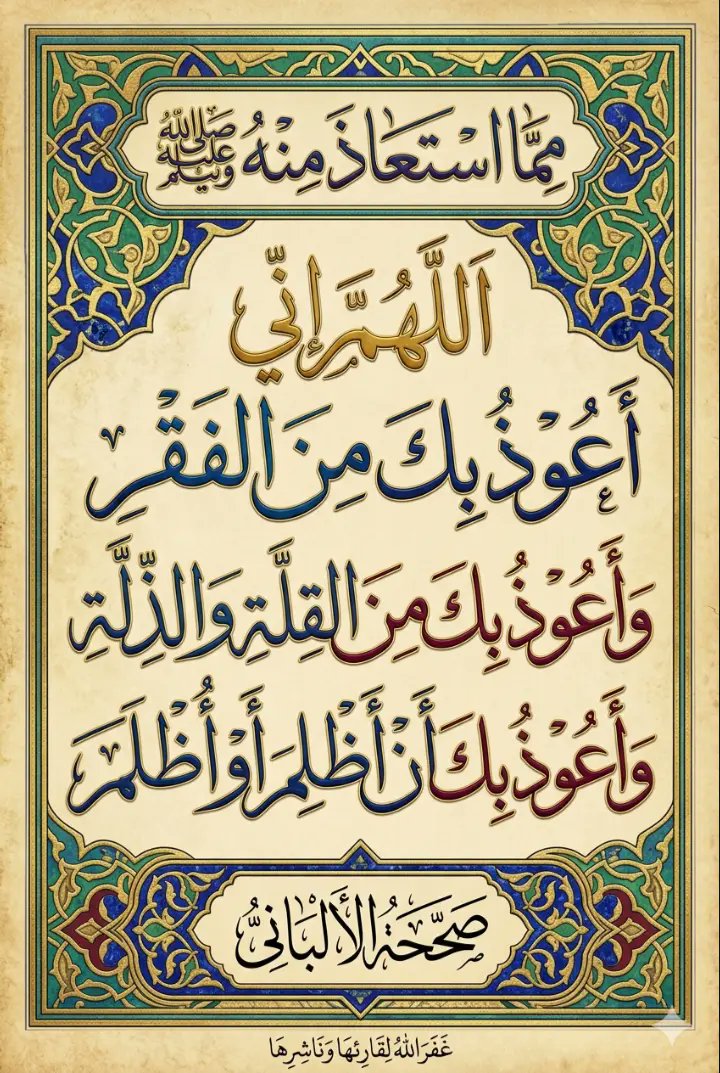 مِمَّا اسْتَعَاذَ مِنْهُ ﷺ
اَللَّهُمَّ إِنِّي
أَعُوْذُ بِكَ مِنَ الفَقْرِ
وَأَعُوْذُ بِكَ مِنَ القِلَّةِ وَالذِّلَّةِ
وَأَعُوْذُ بِكَ أَنْ أَظْلِمَ أَوْ أُظْلَمَ
صَحَّحَهُ الأَلْبَانِيُّ
غَفَرَ اللهُ لِقَارِئِهَا وَنَاشِرِهَا